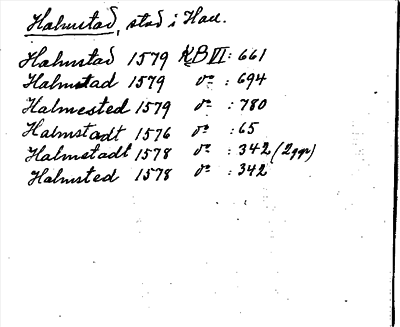 Halmstad, stad i Hall.
Halmstad 1579 KB VI: 661
Halmstad 1579 do : 694
Halmested 1579 do : 780
Halmstadt 1576 do : 65
Halmstadt 1578 do : 342 (2ggr)
Halmsted 1578 do : 342